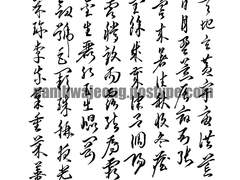 天地玄黃宇宙洪荒
日月盈昃辰宿列張
寒來暑往秋收冬藏
閏餘成歲律呂調陽
雲騰致雨露結為霜
金生麗水玉出崑岡
劍號巨闕珠稱夜光
果珍李柰菜重芥